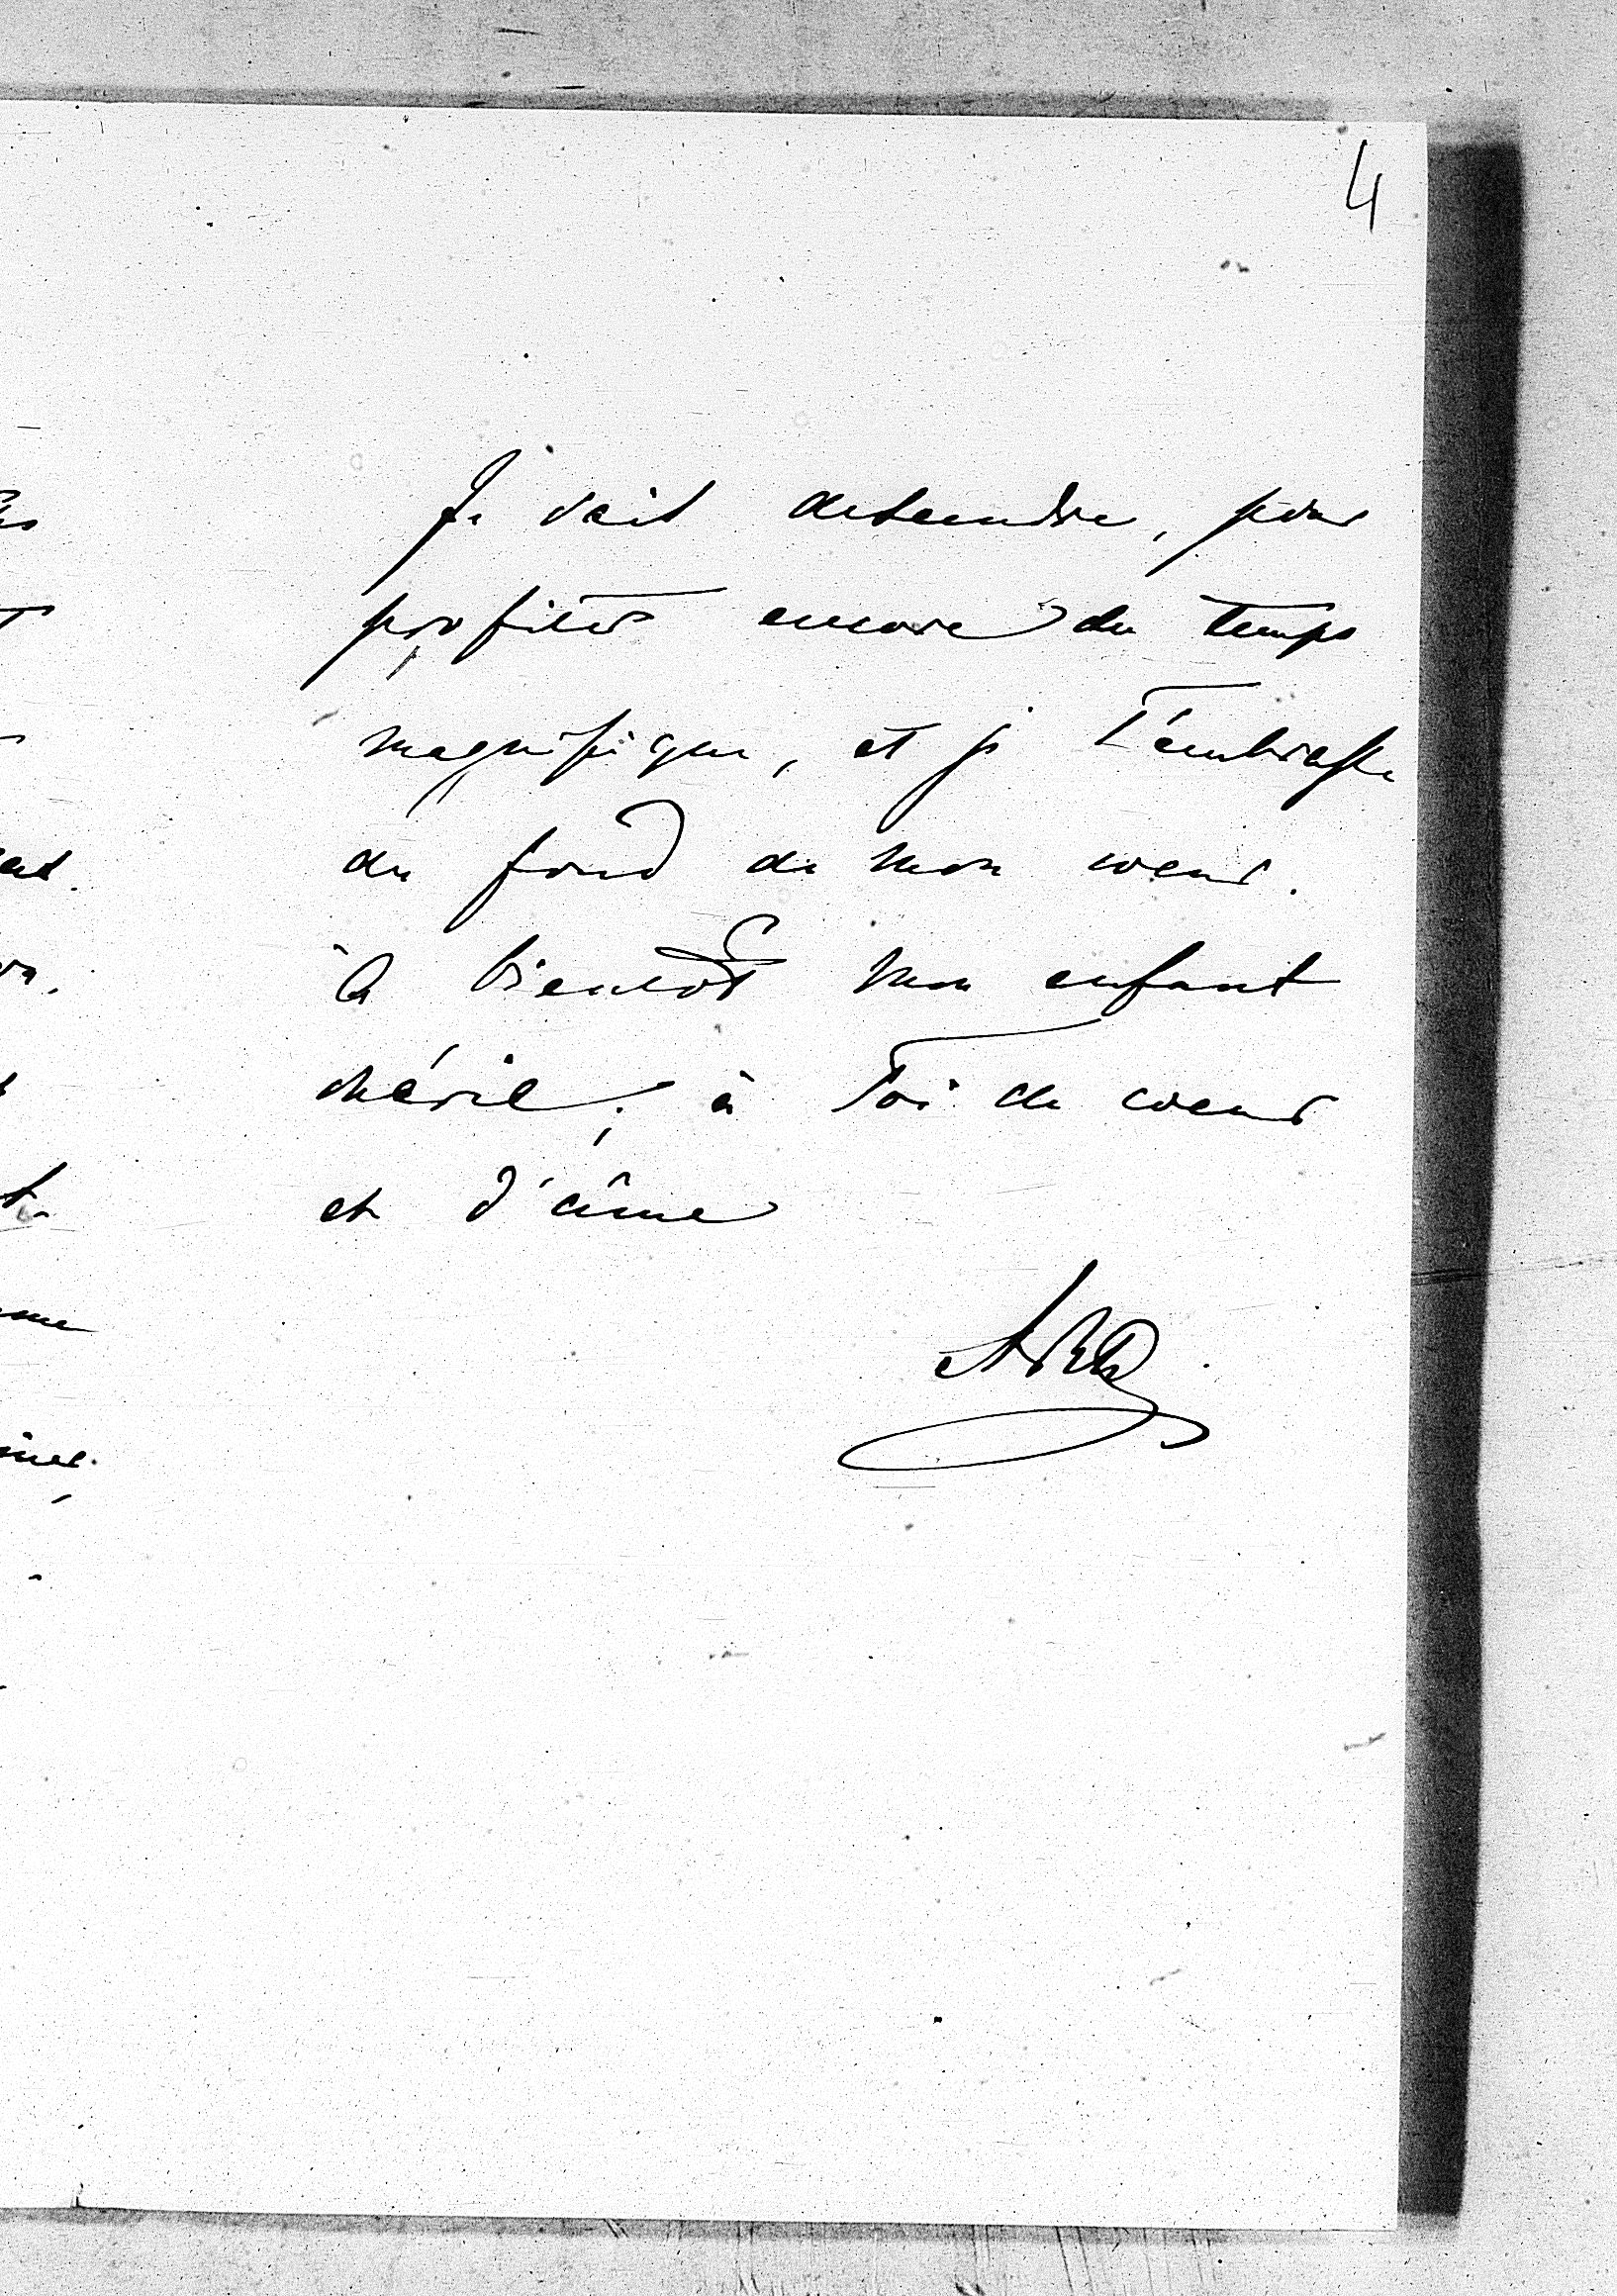 4
Je vais descendre, pour
profiter encore du temps
magnifique, et je t'embrasse
du fond de mon coeur.
à bientôt mon enfant
chérie, à toi de coeur
et d'âme